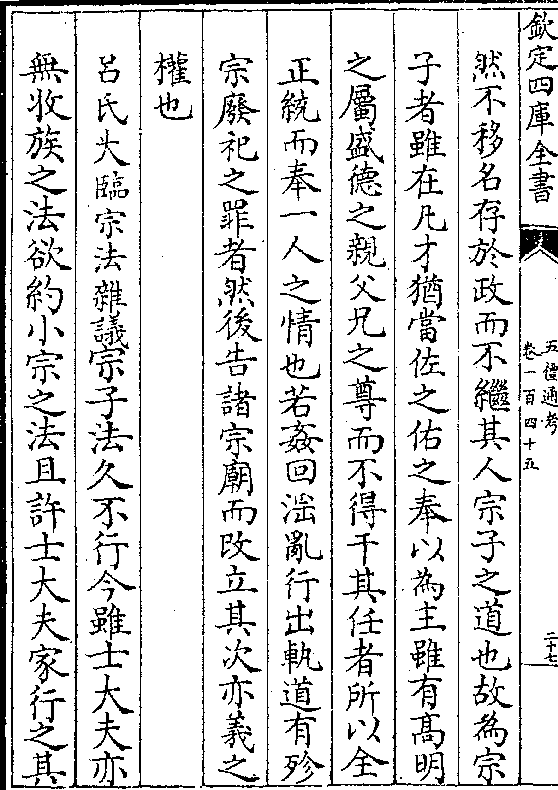 欽定四庫全書
五禮通考
卷一百四十五
二十七
然不移名存於政而不繼其人宗子之道也故為宗
子者雖在凡才猶當佐之佑之奉以為主雖有高明
之屬盛德之親父兄之尊而不得干其任者所以全
正統而奉一人之情也若姦回淫亂行出軌道有殄
宗廢祀之罪者然後告諸宗廟而改立其次亦義之
權也
呂氏大臨宗法雜議宗子法久不行今雖士大夫亦
無收族之法欲約小宗之法且許士大夫家行之其